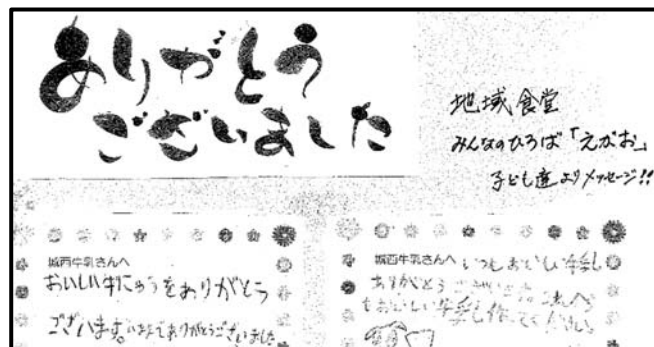 ありがとう
ございました
地域食堂
みんなのひろば「えがお」
子ども達よりメッセージ!!
城西牛乳さんへ
おいしい牛にゅうをありがとう
ございます。いままでありがとうございました
城西牛乳さんへ いつもおいしい牛乳
ありがとうございます。これから
もおいしい牛乳作ってください。